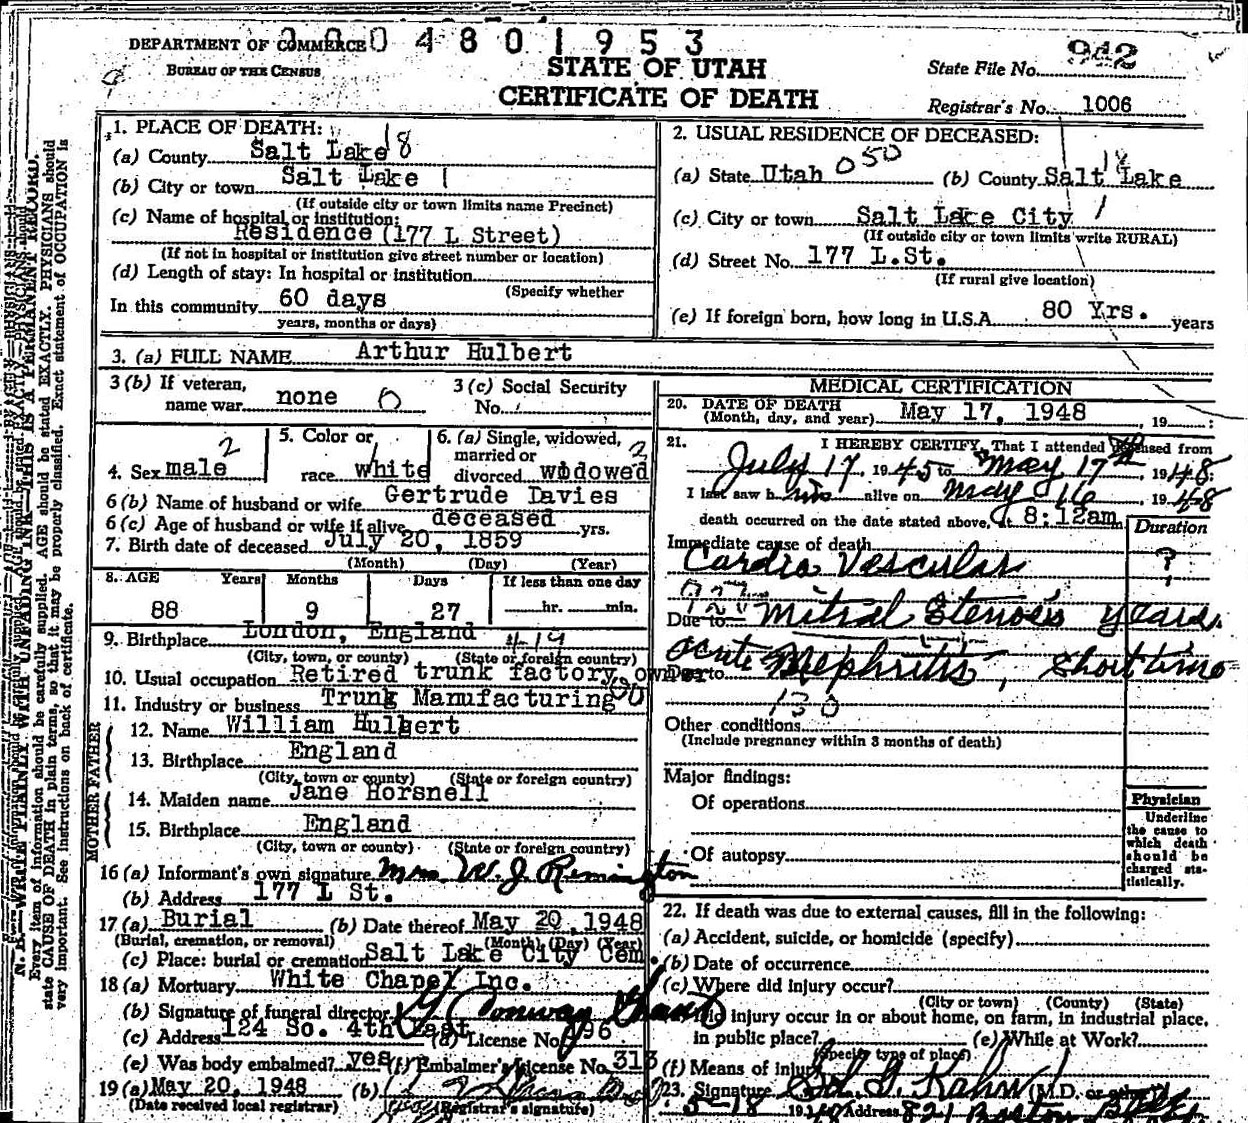 000480 1953
DEPARTMENT OF COMMERCE
BUREAU OF THE CENSUS
STATE OF UTAH
CERTIFICATE OF DEATH
State File No. 942
Registrar's No. 1006
N. B.—WRITE PLAINLY WITH UNFADING INK—THIS IS A PERMANENT RECORD.
Every item of information should be carefully supplied. AGE should be stated EXACTLY. PHYSICIANS should
state CAUSE OF DEATH in plain terms, so that it may be properly classified. Exact statement of OCCUPATION is
very important. See instructions on back of certificate.
1. PLACE OF DEATH:
(a) County Salt Lake 18
(b) City or town Salt Lake 1
(If outside city or town limits name Precinct)
(c) Name of hospital or institution:
Residence (177 L Street)
(If not in hospital or institution give street number or location)
(d) Length of stay: In hospital or institution
(Specify whether
In this community 60 days
years, months or days)
2. USUAL RESIDENCE OF DECEASED:
(a) State Utah 050 (b) County Salt Lake 18
(c) City or town Salt Lake City 1
(If outside city or town limits write RURAL)
(d) Street No. 177 L.St.
(If rural give location)
(e) If foreign born, how long in U.S.A. 80 Yrs. years
3. (a) FULL NAME Arthur Hulbert
3 (b) If veteran, name war none 0
3 (c) Social Security No.
4. Sex male 2
5. Color or race white 1
6. (a) Single, widowed, married or divorced widowed 2
6 (b) Name of husband or wife Gertrude Davies
6 (c) Age of husband or wife if alive deceased yrs.
7. Birth date of deceased July 20, 1859
(Month) (Day) (Year)
8. AGE Years Months Days If less than one day
88 9 27 hr. min.
9. Birthplace London, England 419
(City, town, or county) (State or foreign country)
10. Usual occupation Retired trunk factory owner
11. Industry or business Trunk Manufacturing
FATHER
12. Name William Hulbert
13. Birthplace England
(City, town or county) (State or foreign country)
MOTHER
14. Maiden name Jane Horsnell
15. Birthplace England
(City, town or county) (State or foreign country)
16 (a) Informant's own signature Mrs. W. J. Remington
(b) Address 177 L St.
17 (a) Burial (b) Date thereof May 20, 1948
(Burial, cremation, or removal) (Month) (Day) (Year)
(c) Place: burial or cremation Salt Lake City Cem.
18 (a) Mortuary White Chapel Inc.
(b) Signature of funeral director
(c) Address 124 So. 4th East (d) License No. 96
(e) Was body embalmed? yes (f) Embalmer's License No. 313
19 (a) May 20, 1948 (b)
(Date received local registrar) (Registrar's signature)
MEDICAL CERTIFICATION
20. DATE OF DEATH
(Month, day, and year) May 17, 1948, 19 :
21. I HEREBY CERTIFY, That I attended deceased from
July 17, 1945 to May 17th, 1948;
I last saw him alive on May 16, 1948
death occurred on the date stated above, at 8:12am
Duration
Immediate cause of death
Cardio Vescular ?
Due to Mitral Stenosis years.
acute Nephritis, short time
Due to
130
Other conditions
(Include pregnancy within 3 months of death)
Major findings:
Of operations
Of autopsy
Physician
Underline
the cause to
which death
should be
charged sta-
tistically.
22. If death was due to external causes, fill in the following:
(a) Accident, suicide, or homicide (specify)
(b) Date of occurrence
(c) Where did injury occur?
(City or town) (County) (State)
Did injury occur in or about home, on farm, in industrial place,
in public place? (e) While at Work?
(Specify type of place)
(f) Means of Injury
23. Signature (M.D. or other)
5-18 1948 Address 821 Boston Bldg.